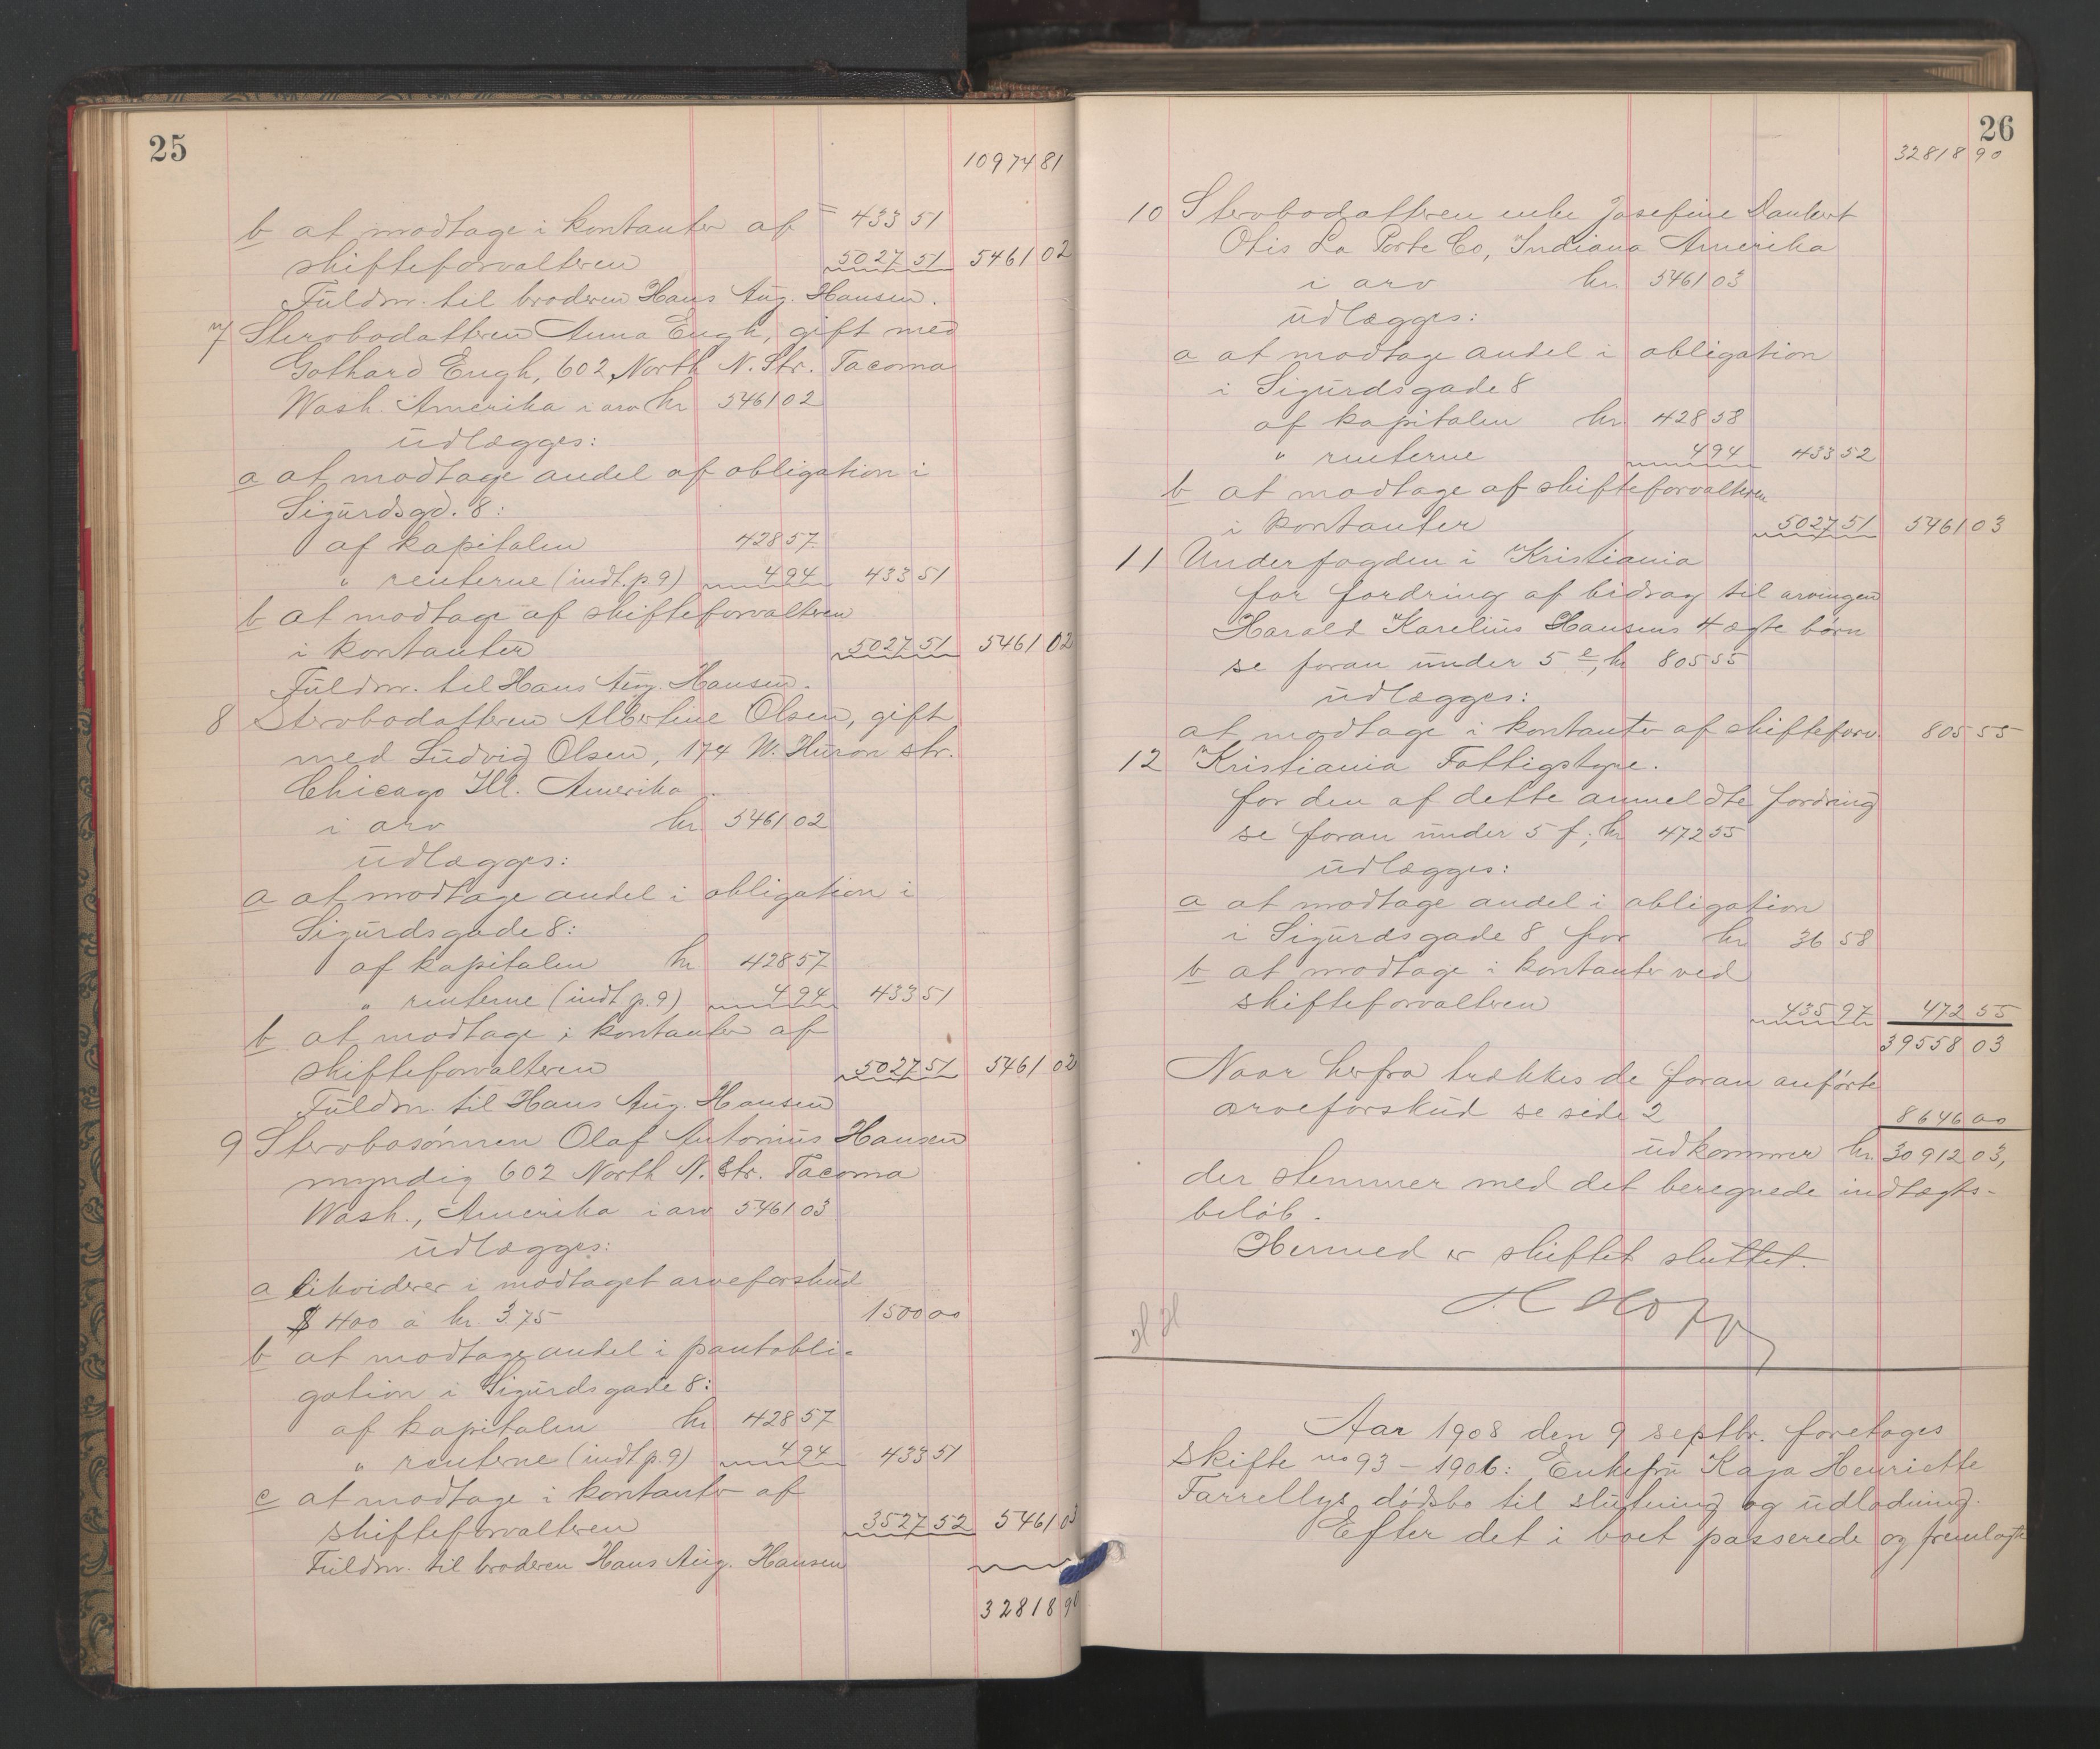 25
10974 81
b at modtage i kontanter af = 433 51
skifteforvalteren 5027 51 5461 02
Fuldm. til broderen Hans Aug. Hansen.
7 Stervbodatteren Anna Engh, gift med
Gothard Engh, 602 North N. Str. Tacoma
Wash. Amerika i arv kr 5461 02
udlægges:
a at modtage andel af obligation i
Sigurdsgd. 8:
af kapitalen 428 57
" renterne (indt. p. 9) 4 94 433 51
b at modtage af skifteforvalteren
i kontanter 5027 51 5461 02
Fuldm. til Hans Aug. Hansen.
8 Stervbodatteren Albertine Olsen, gift
med Ludvig Olsen, 174 W. Huron str.
Chicago Ill. Amerika
i arv kr. 5461 02
udlægges:
a at modtage andel i obligation i
Sigurdsgade 8:
af kapitalen kr 428 57
" renterne (indt p. 9) 4 94 433 51
b at modtage i kontanter af
skifteforvalteren 5027 51 5461 02
Fuldm. til Hans Aug. Hansen
9 Stervbosønnen Olaf Antonius Hansen
myndig 602 North N. Str. Tacoma
Wash., Amerika i arv 5461 03
udlægges:
a likviderer i modtaget arveforskud
$ 400 a kr. 3.75 1500 00
b at modtage andel i pantobli-
gation i Sigurdsgade 8:
af kapitalen kr 428 57
" renterne (indt p. 9) 4 94 433 51
c at modtage i kontanter af
skifteforvalteren 3527 52 5461 03
Fuldm. til broderen Hans Aug. Hansen
32818 90
26
32818 90
10 Stervbodatteren enke Josefine Daubert
Otis La Porte Co, Indiana Amerika
i arv kr. 5461 03
udlægges:
a at modtage andel i obligation
i Sigurdsgade 8
af kapitalen kr. 428 58
" renterne 4 94 433 52
b at modtage af skifteforvalteren
i kontanter 5027 51 5461 03
11 Underfogden i Kristiania
for fordring af bidrag til arvingen
Harald Karelius Hansens 4 ægte børn
se foran under 5 e, kr 805 55
udlægges:
at modtage i kontanter af skifteforv. 805 55
12 Kristiania Fattigstyre.
for den af dette anmeldte fordring
se foran under 5 f; kr 472 55
udlægges:
a at modtage andel i obligation
i Sigurdsgade 8 for kr 36 58
b at modtage i kontanter ved
skifteforvalteren 435 97 472 55
39558 03
Naar herfra trækkes de foran anførte
arveforskud se side 2 8646 00
udkommer kr. 30912 03,
der stemmer med det beregnede indtægts-
beløb.
Hermed er skiftet sluttet.
Aar 1908 den 9 septbr. foretoges
skifte no 93 - 1906: Enkefru Kaja Henriette
Farrellys dødsbo til slutning og udlodning.
Efter det i boet passerede og fremlagte